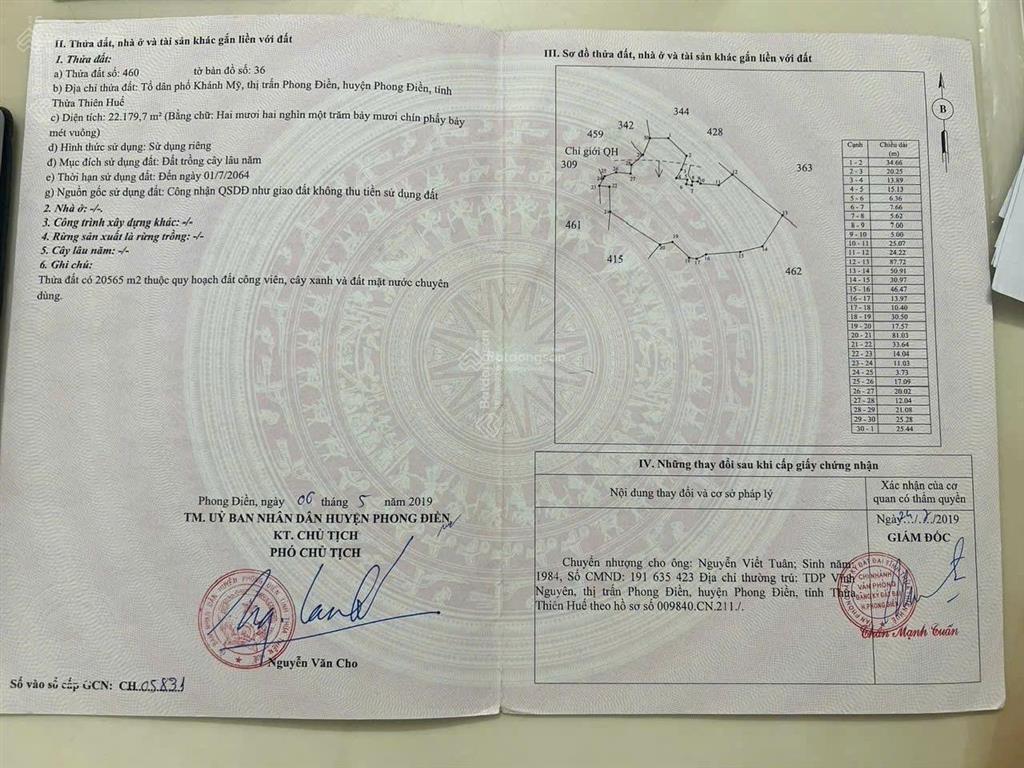 II. Thửa đất, nhà ở và tài sản khác gắn liền với đất
1. Thửa đất:
a) Thửa đất số: 460 tờ bản đồ số: 36
b) Địa chỉ thửa đất: Tổ dân phố Khánh Mỹ, thị trấn Phong Điền, huyện Phong Điền, tỉnh
Thừa Thiên Huế
c) Diện tích: 22.179,7 m² (Bằng chữ: Hai mươi hai nghìn một trăm bảy mươi chín phẩy bảy
mét vuông)
d) Hình thức sử dụng: Sử dụng riêng
đ) Mục đích sử dụng đất: Đất trồng cây lâu năm
e) Thời hạn sử dụng đất: Đến ngày 01/7/2064
g) Nguồn gốc sử dụng đất: Công nhận QSDĐ như giao đất không thu tiền sử dụng đất
2. Nhà ở: -/-.
3. Công trình xây dựng khác: -/-
4. Rừng sản xuất là rừng trồng: -/-
5. Cây lâu năm: -/-
6. Ghi chú:
Thửa đất có 20565 m2 thuộc quy hoạch đất công viên, cây xanh và đất mặt nước chuyên
dùng.
Phong Điền, ngày 06 tháng 5 năm 2019
TM. UỶ BAN NHÂN DÂN HUYỆN PHONG ĐIỀN
KT. CHỦ TỊCH
PHÓ CHỦ TỊCH
Nguyễn Văn Cho
Số vào sổ cấp GCN: CH.05831
III. Sơ đồ thửa đất, nhà ở và tài sản khác gắn liền với đất
B
344
342
428
459
Chỉ giới QH
309
363
461
415
462
Cạnh Chiều dài
(m)
1 - 2 34.66
2 - 3 20.25
3 - 4 13.89
4 - 5 15.13
5 - 6 6.36
6 - 7 7.66
7 - 8 5.62
8 - 9 7.00
9 - 10 5.00
10 - 11 25.07
11 - 12 24.22
12 - 13 87.72
13 - 14 50.91
14 - 15 30.97
15 - 16 46.47
16 - 17 13.97
17 - 18 10.40
18 - 19 30.50
19 - 20 17.57
20 - 21 81.03
21 - 22 33.64
22 - 23 14.04
23 - 24 11.03
24 - 25 3.73
25 - 26 17.09
26 - 27 20.02
27 - 28 12.04
28 - 29 21.08
29 - 30 25.28
30 - 1 25.44
IV. Những thay đổi sau khi cấp giấy chứng nhận
Nội dung thay đổi và cơ sở pháp lý
Xác nhận của cơ
quan có thẩm quyền
Chuyển nhượng cho ông: Nguyễn Viết Tuân; Sinh năm
1984, Số CMND: 191 635 423 Địa chỉ thường trú: TDP Vĩnh
Nguyên, thị trấn Phong Điền, huyện Phong Điền, tỉnh Thừa
Thiên Huế theo hồ sơ số 009840.CN.211./.
Ngày 24/7/2019
GIÁM ĐỐC
CHI NHÁNH
VĂN PHÒNG
ĐĂNG KÝ ĐẤT ĐAI
H. PHONG ĐIỀN
Trần Mạnh Tuấn
Batdongsan